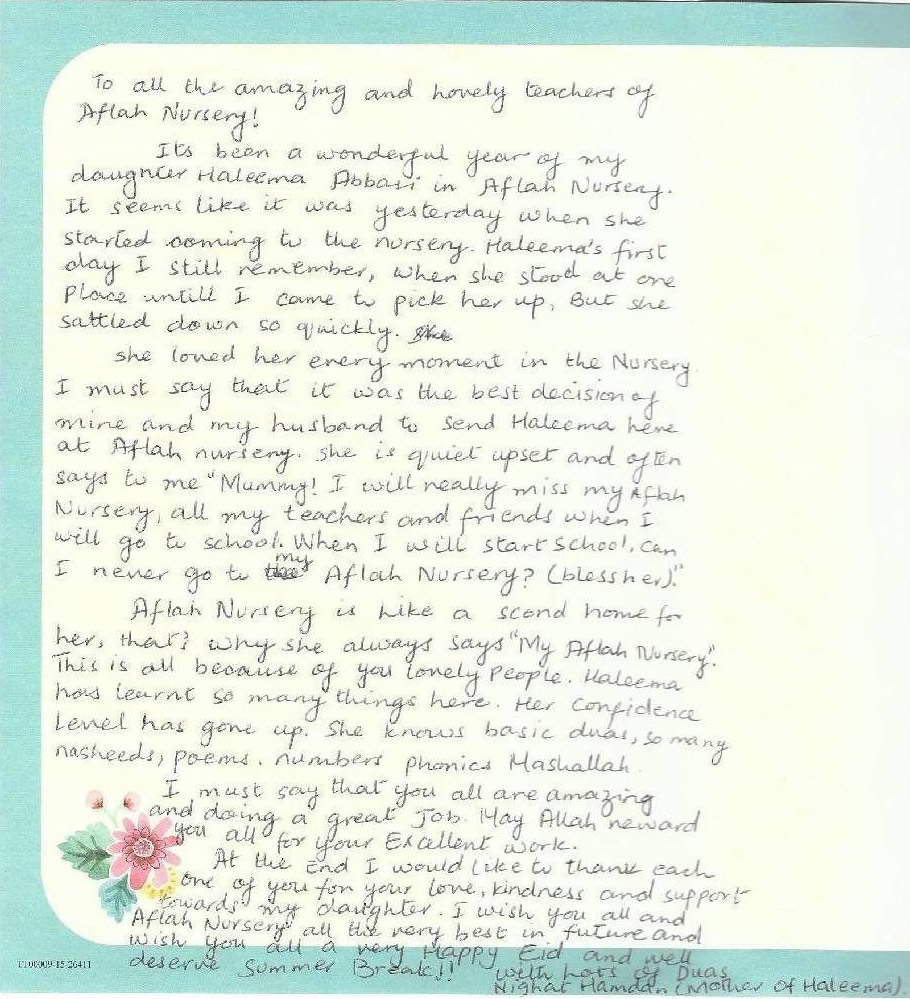 To all the amazing and lovely teachers of
Aflah Nursery!
Its been a wonderful year of my
daughter Haleema Abbasi in Aflah Nursery.
It seems like it was yesterday when she
started coming to the nursery. Haleema's first
day I still remember, when she stood at one
Place untill I came to pick her up, But she
sattled down so quickly.
she loved her every moment in the Nursery
I must say that it was the best decision of
mine and my husband to send Haleema here
at Aflah nursery. she is quiet upset and often
says to me "Mummy! I will really miss my Aflah
Nursery, all my teachers and friends when I
will go to school. When I will start School, can
I never go to my Aflah Nursery? (bless her)."
Aflah Nursery is Like a scond home for
her, that's why she always says "My Aflah Nursery".
This is all because of you lovely People. Haleema
has learnt so many things here. Her Confidence
Level has gone up. She knows basic duas, so many
nasheeds, poems, numbers phonics Mashallah.
I must say that you all are amazing
and doing a great Job. May Allah reward
you all for your Excellent work.
At the End I would Like to thank each
one of you for your love, kindness and support
towards my daughter. I wish you all and
Aflah Nursery all the very best in future and
wish you all a very Happy Eid and well
deserve Summer Break!!
with Lots of Duas
Nighat Hamdan (Mother of Haleema).
F100009-15-26411